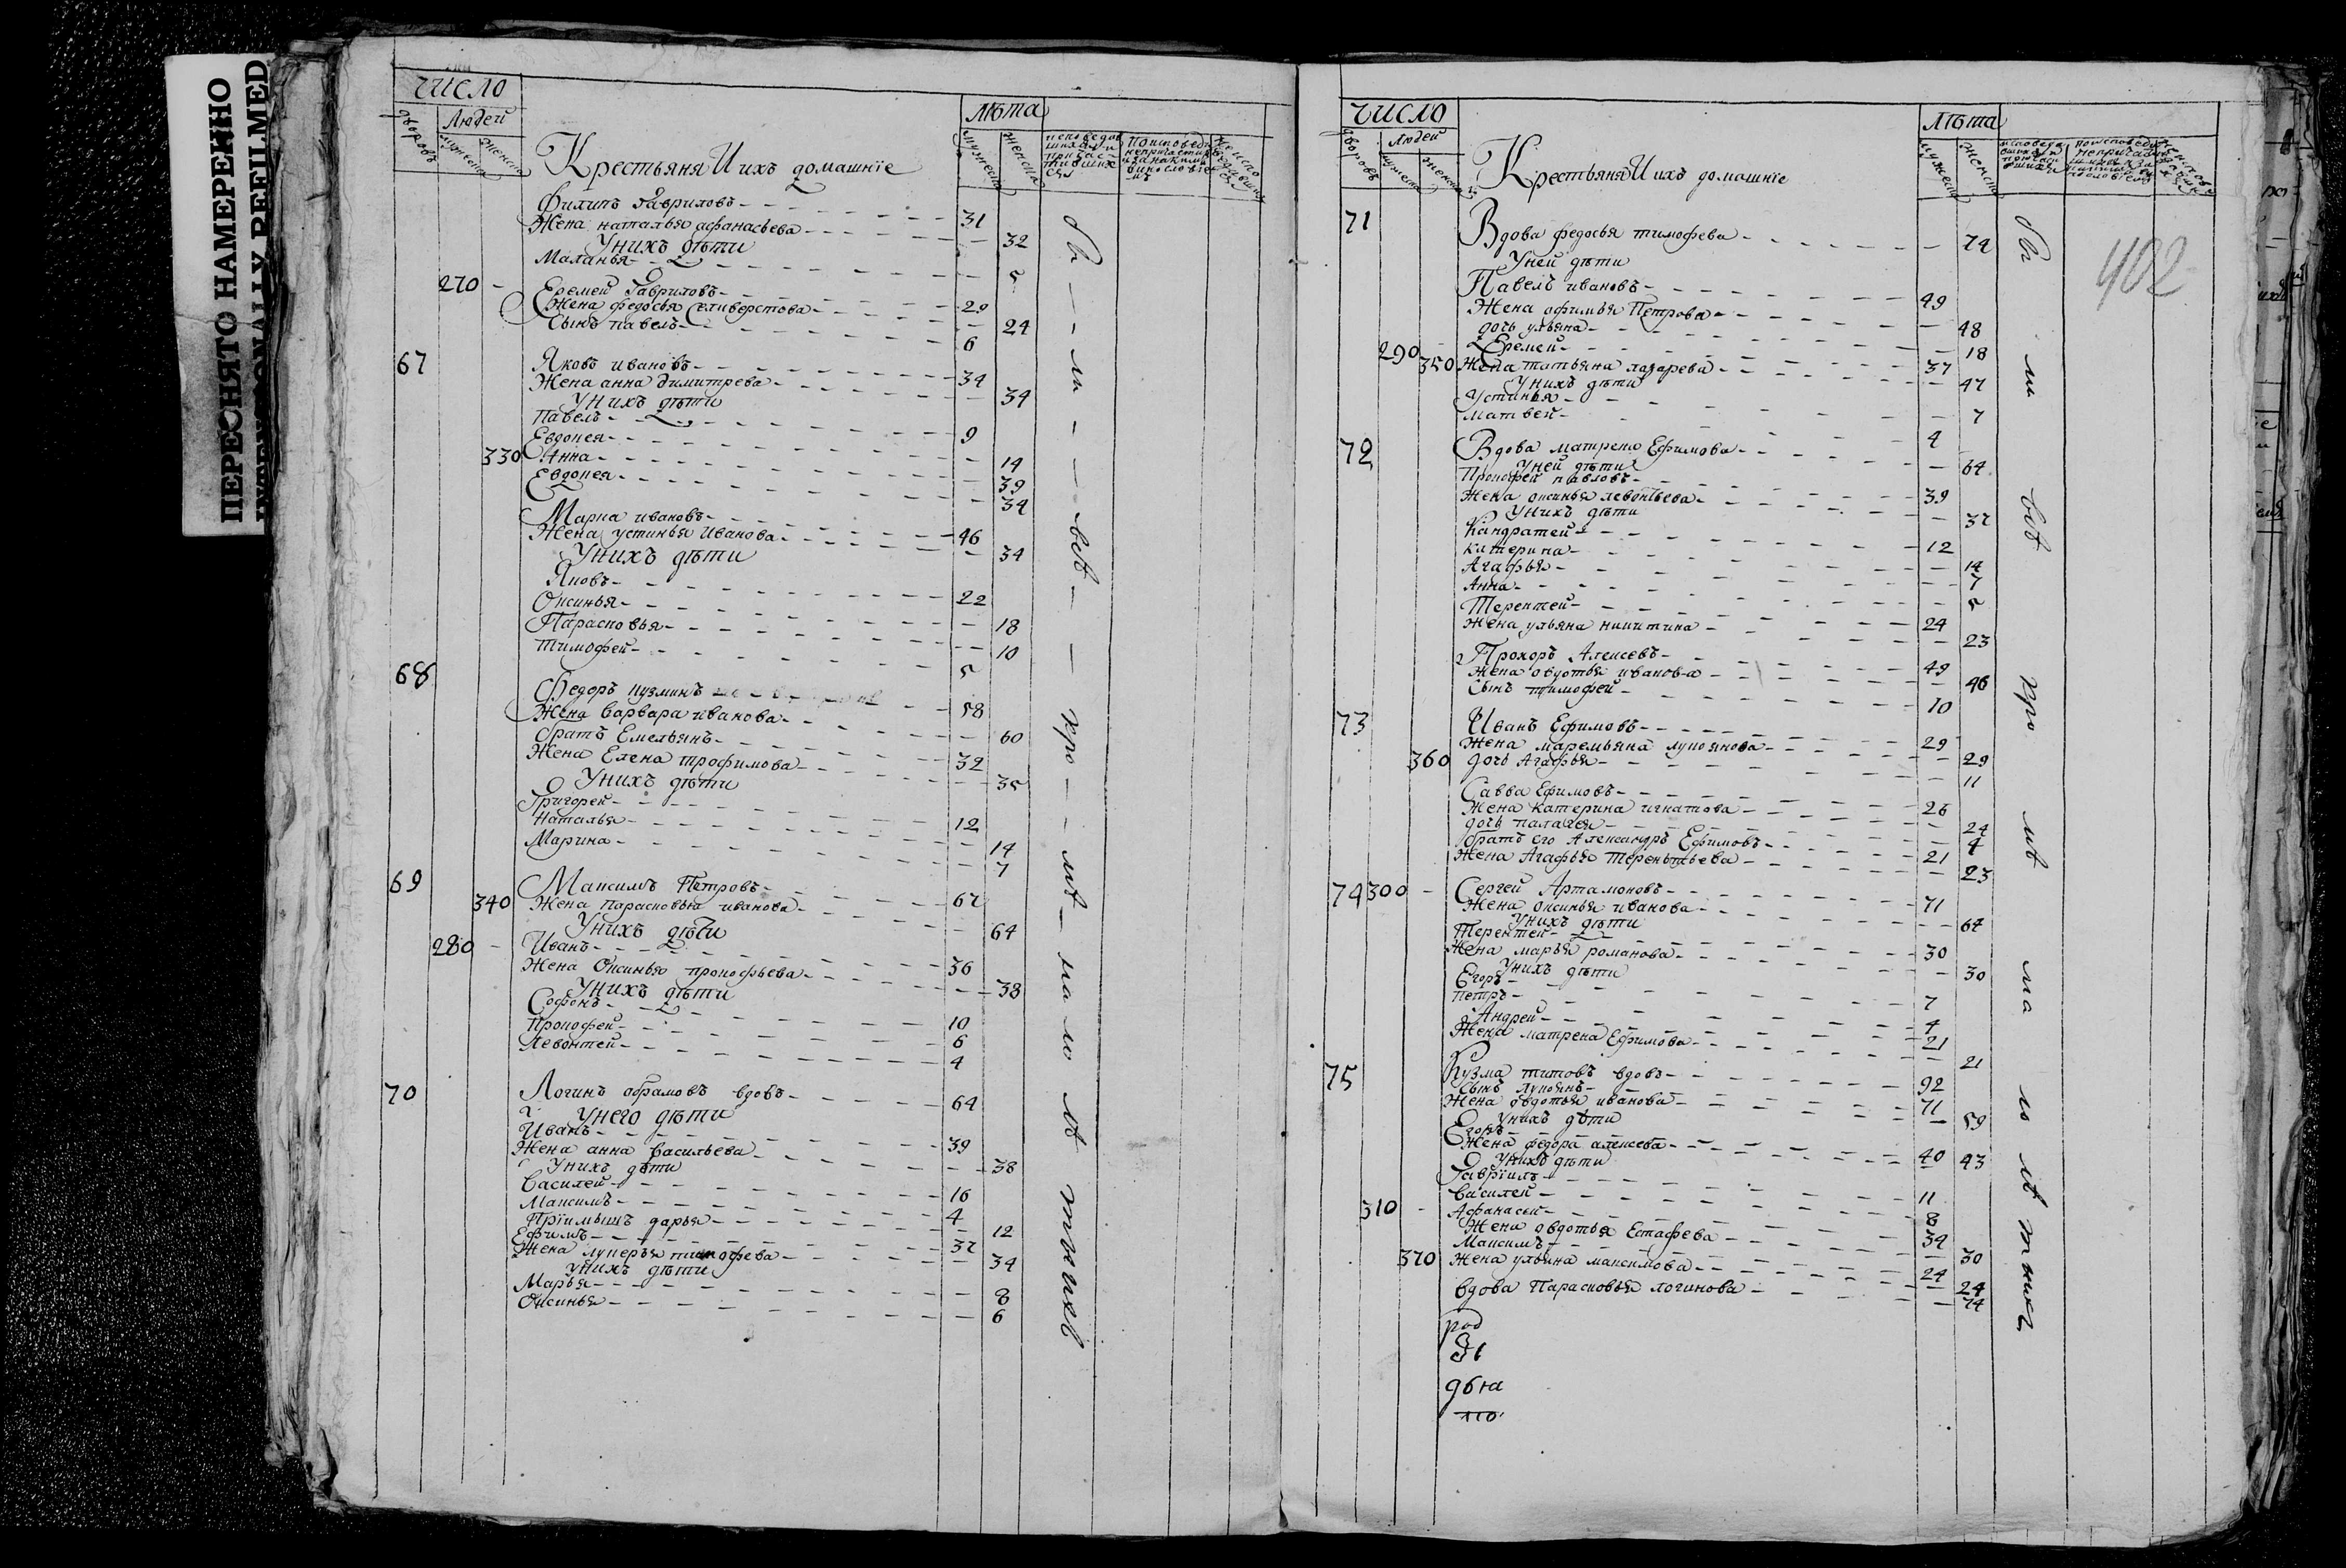 ПЕРЕСНЯТО НАМЕРЕННО
INTENTIONALLY REFILMED
число
дворовъ
Людей
мужеска
женска
Крестьяня И ихъ домашнїе
лѣта
мужеска
женска
Филипъ Гавриловъ 31
Жена наталья афанасьева 32
У нихъ дѣти
Маланья 5
270 Еремей Гавриловъ 29
Жена федосья Селиверстова 24
Сынъ павелъ 6
67 Яковъ ивановъ 34
Жена анна димитрева 34
У нихъ дѣти
Павелъ 9
Евдокея 14
330 Анна 39
Евдокея 34
Марка ивановъ 46
Жена устинья Иванова 34
У нихъ дѣти
Яковъ 22
Оксинья 18
Парасковья 10
Тимофей 5
68 Федоръ кузминъ 58
Жена варвара иванова 60
братъ Емельянъ 32
Жена Елена трофимова 35
У нихъ дѣти
Григорей 12
Наталья 14
Марина 7
69 Максимъ Петровъ 67
340 Жена парасковья иванова 64
У нихъ дѣти
280 Иванъ 36
Жена Оксинья прокофьева 38
У нихъ дѣти
Софонъ 10
Прокофей 6
Левонтей 4
70 Логинъ абрамовъ вдовъ 64
У него дѣти
Иванъ 39
Жена анна васильева 38
У нихъ дѣти
Василей 16
Максимъ 4
Прїимышъ дарья 12
Ефимъ 37
Жена лукерья тимофева 34
У нихъ дѣти
Марья 8
Оксинья 6
число
дворовъ
Людей
мужеска
женска
Крестьяня И ихъ домашнїе
лѣта
мужеска
женска
402
71 Вдова федосья тимофева 72
У ней дѣти
Павелъ ивановъ 49
Жена офимья Петрова 48
дочь ульяна 18
290 Еремей 37
350 Жена татьяна лазарева 47
У нихъ дѣти
Устинья 7
Матвей 4
72 Вдова матрена Ефимова 64
У ней дѣти
Прокофей павловъ 39
Жена оксинья левонтьева 37
У нихъ дѣти
Кандратей 12
катерина 14
Агафья 7
Анна 5
Терентей 24
Жена ульяна никитина 23
Прохоръ Алексевъ 49
Жена овдотья иванова 46
Сынъ тимофей 10
73 Иванъ Ефимовъ 29
Жена маремьяна лукоянова 29
360 дочь Агафья 11
Савва Ефимовъ 26
Жена катерина игнатова 24
дочь палагея 4
братъ его Александръ Ефимовъ 21
Жена Агафья терентьева 23
74 300 Сергей Артамоновъ 71
Жена оксинья иванова 64
У нихъ дѣти
Терентей 30
Жена марья романова 30
У нихъ дѣти
Егоръ 7
Петръ 4
Андрей 21
Жена матрена Ефимова 21
75 Кузма титовъ вдовъ 92
Сынъ лукоянъ 71
Жена овдотья иванова 59
У нихъ дѣти
Егоръ 40
Жена федора алексева 43
У нихъ дѣти
Гаврїилъ 11
Василей 8
310 Афанасей 34
Жена овдотья Естафева 30
Максимъ 24
370 Жена ульяна максимова 24
вдова Парасковья логинова 74